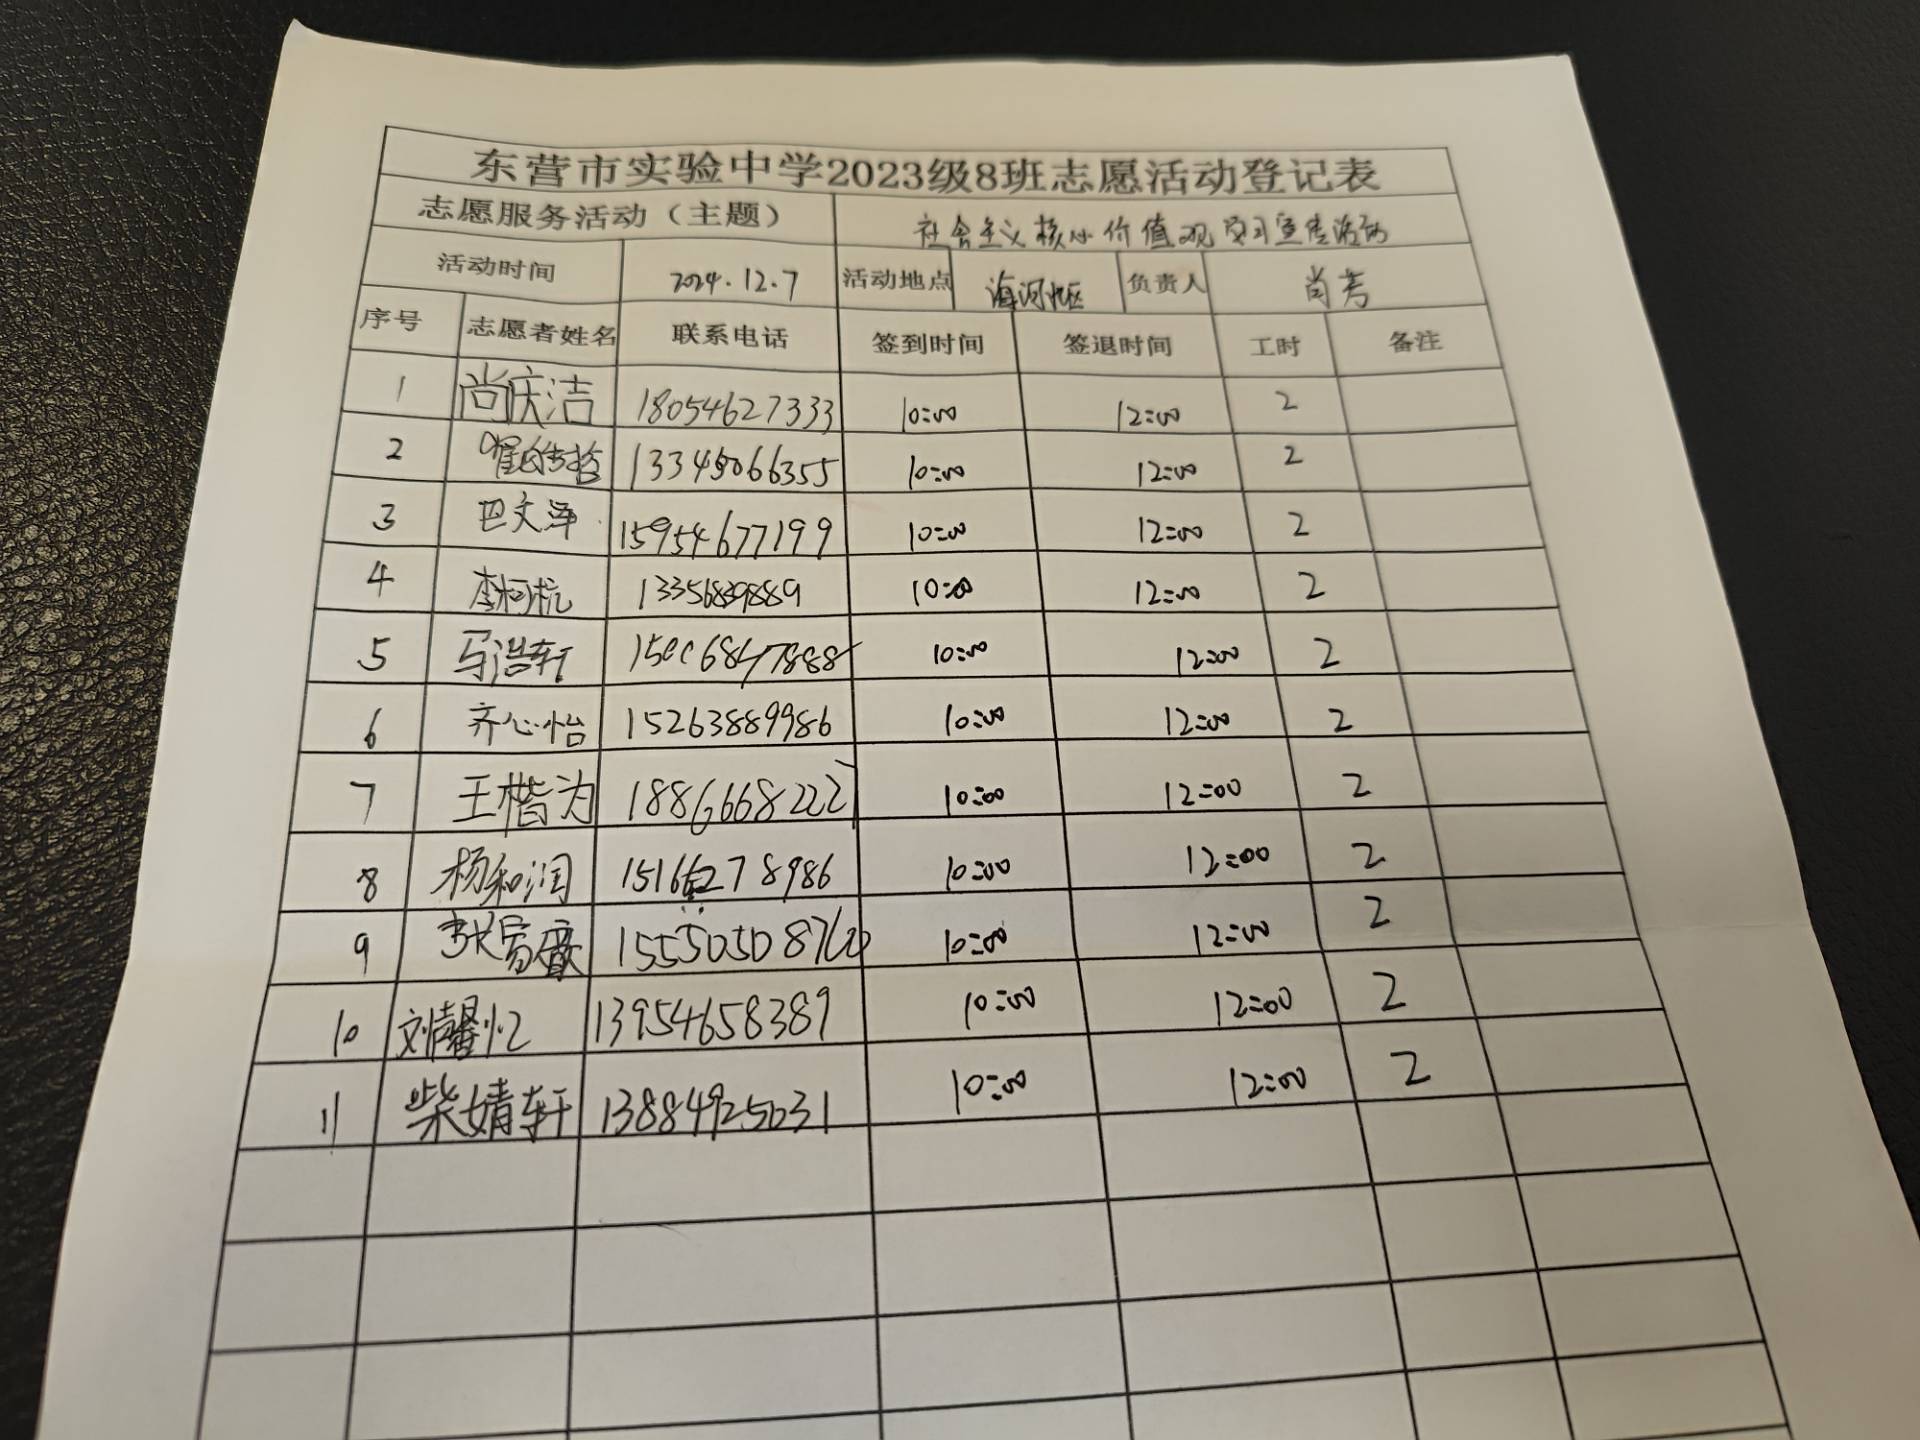 东营市实验中学2023级8班志愿活动登记表
志愿服务活动（主题） 社会主义核心价值观学习宣传活动
活动时间 2024.12.7 活动地点 海河小区 负责人 尚考
序号 志愿者姓名 联系电话 签到时间 签退时间 工时 备注
1 尚庆洁 18054627333 10:00 12:00 2
2 10:00 12:00 2
3 巴文泽 15954677199 10:00 12:00 2
4 李柯杭 10:00 12:00 2
5 马浩轩 15006847888 10:00 12:00 2
6 齐心怡 15263889986 10:00 12:00 2
7 王楷为 18866668222 10:00 12:00 2
8 杨和润 10:00 12:00 2
9 10:00 12:00 2
10 刘馨忆 13954658389 10:00 12:00 2
11 柴婧轩 13884925031 10:00 12:00 2